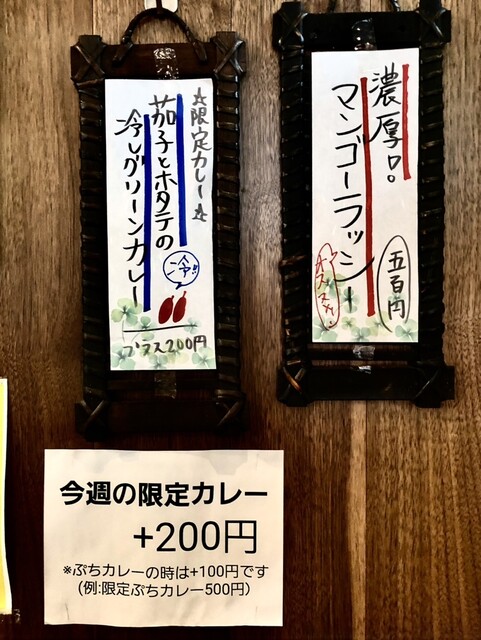 ☆限定カレー☆
茄子とホタテの
冷しグリーンカレー
冷!!
プラス200円
濃厚!!
マンゴーラッシー
五百円
オススメ!
今週の限定カレー
+200円
※ぷちカレーの時は+100円です
(例:限定ぷちカレー500円)